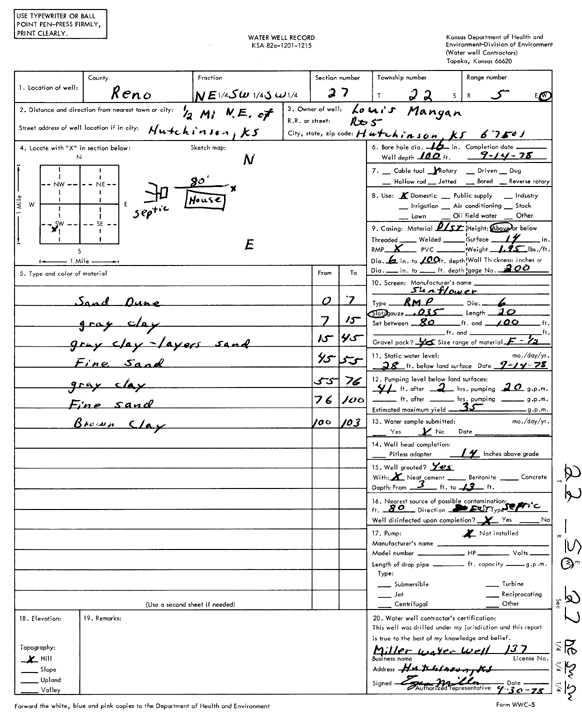 USE TYPEWRITER OR BALL
POINT PEN-PRESS FIRMLY,
PRINT CLEARLY.
WATER WELL RECORD
KSA 82a-1201-1215
Kansas Department of Health and
Environment-Division of Environment
(Water well Contractors)
Topeka, Kansas 66620
1. Location of well:
County
Reno
Fraction
NE 1/4 SW 1/4 SW 1/4
Section number
27
Township number
T 22 S
Range number
R 5 E/W
2. Distance and direction from nearest town or city: 1/2 Mi N.E. of
Street address of well location if in city: Hutchinson, KS
3. Owner of well: Louis Mangan
R.R. or street: Rt 5
City, state, zip code: Hutchinson, KS 67501
4. Locate with "X" in section below:
Sketch map:
N
NW NE
W E
SW SE
X
S
1 Mile
1 Mile
N
80'
x
House
septic
E
5. Type and color of material
From To
Sand Dune 0 7
gray clay 7 15
gray clay-layers sand 15 45
Fine sand 45 55
gray clay 55 76
Fine sand 76 100
Brown Clay 100 103
(Use a second sheet if needed)
6. Bore hole dia. 10 in. Completion date
Well depth 100 ft. 9-14-78
7. Cable tool X Rotary Driven Dug
Hollow rod Jetted Bored Reverse rotary
8. Use: X Domestic Public supply Industry
Irrigation Air conditioning Stock
Lawn Oil field water Other
9. Casing: Material Plst Height: Above or below
Threaded Welded Surface 14 in.
RMP X PVC Weight 1.95 lbs./ft.
Dia. 6 in. to 100 ft. depth Wall Thickness: inches or
Dia. in. to ft. depth gage No. 200
10. Screen: Manufacturer's name
Sunflower
Type RMP Dia. 6
Slot/gauze .035 Length 20
Set between 80 ft. and 100 ft.
ft. and ft.
Gravel pack? Yes Size range of material F-1/2
11. Static water level: mo./day/yr.
28 ft. below land surface Date 9-14-78
12. Pumping level below land surfaces:
41 ft. after 2 hrs. pumping 20 g.p.m.
ft. after hrs. pumping g.p.m.
Estimated maximum yield 35 g.p.m.
13. Water sample submitted: mo./day/yr.
Yes X No Date
14. Well head completion:
Pitless adapter 14 Inches above grade
15. Well grouted? Yes
With: X Neat cement Bentonite Concrete
Depth: From 3 ft. to 13 ft.
16. Nearest source of possible contamination:
ft. 80 Direction East Type septic
Well disinfected upon completion? X Yes No
17. Pump: X Not installed
Manufacturer's name
Model number HP Volts
Length of drop pipe ft. capacity g.p.m.
Type:
Submersible Turbine
Jet Reciprocating
Centrifugal Other
18. Elevation:
Topography:
X Hill
Slope
Upland
Valley
19. Remarks:
20. Water well contractor's certification:
This well was drilled under my jurisdiction and this report
is true to the best of my knowledge and belief.
Miller water well 137
Business name License No.
Address Hutchinson, KS
Signed Miller Date
Authorized representative 9-30-78
Forward the white, blue and pink copies to the Department of Health and Environment
Form WWC-5
22 - 5 E W 27 NE SW SW
Sec 1/4 1/4 1/4